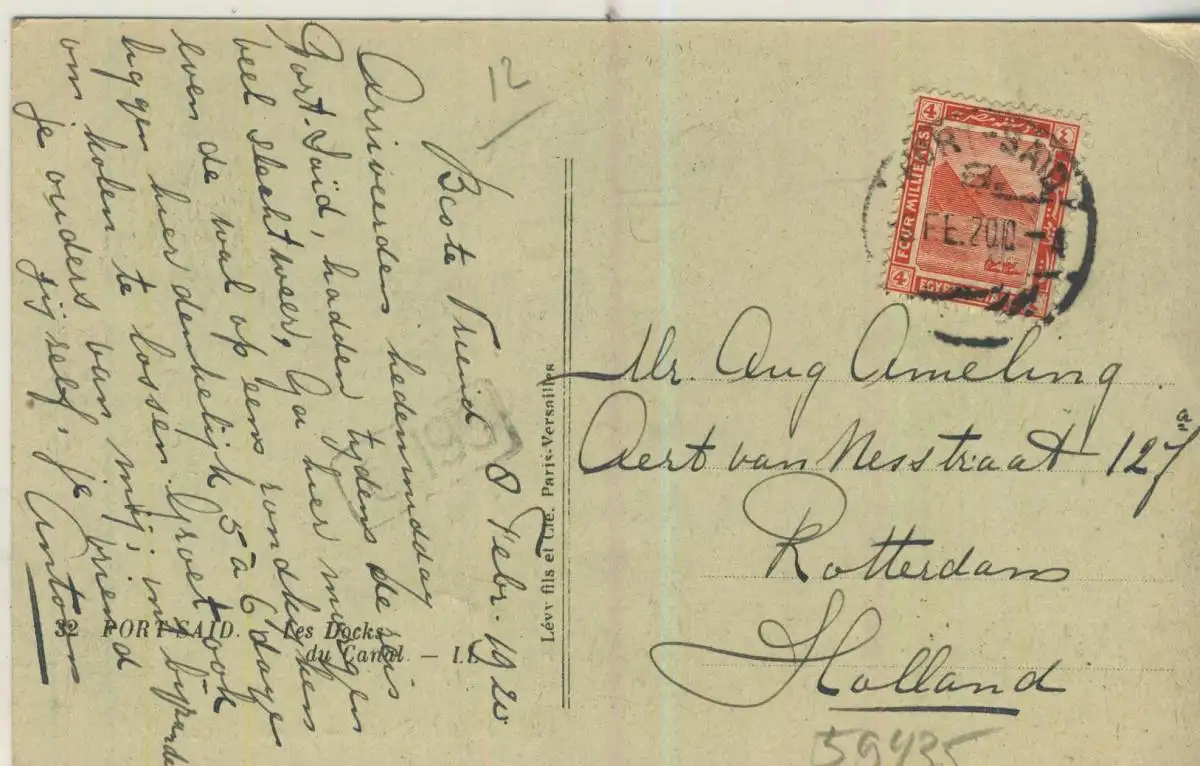 8 Febr. 1920
Beste Vriend
Arriveerden hedenmiddag
Port-Saïd, hadden tijdens de reis
veel slecht weer, Ga hier morgen
even de wal op eens rondkijken
liggen hier denkelijk 5 à 6 dage
om kolen te lossen. Groet ook
om je ouders van mij,
jij zelf, je vriend
Anton
32 PORT-SAÏD. — Les Docks
du Canal. — LL.
Lévy fils et Cie. Paris-Versailles
Mr. Aug Ameling
Aert van Nesstraat 127a
Rotterdam
Holland
59435
4
FOUR MILLIEMES
4
EGYPT
PORT-SAID
FE.20